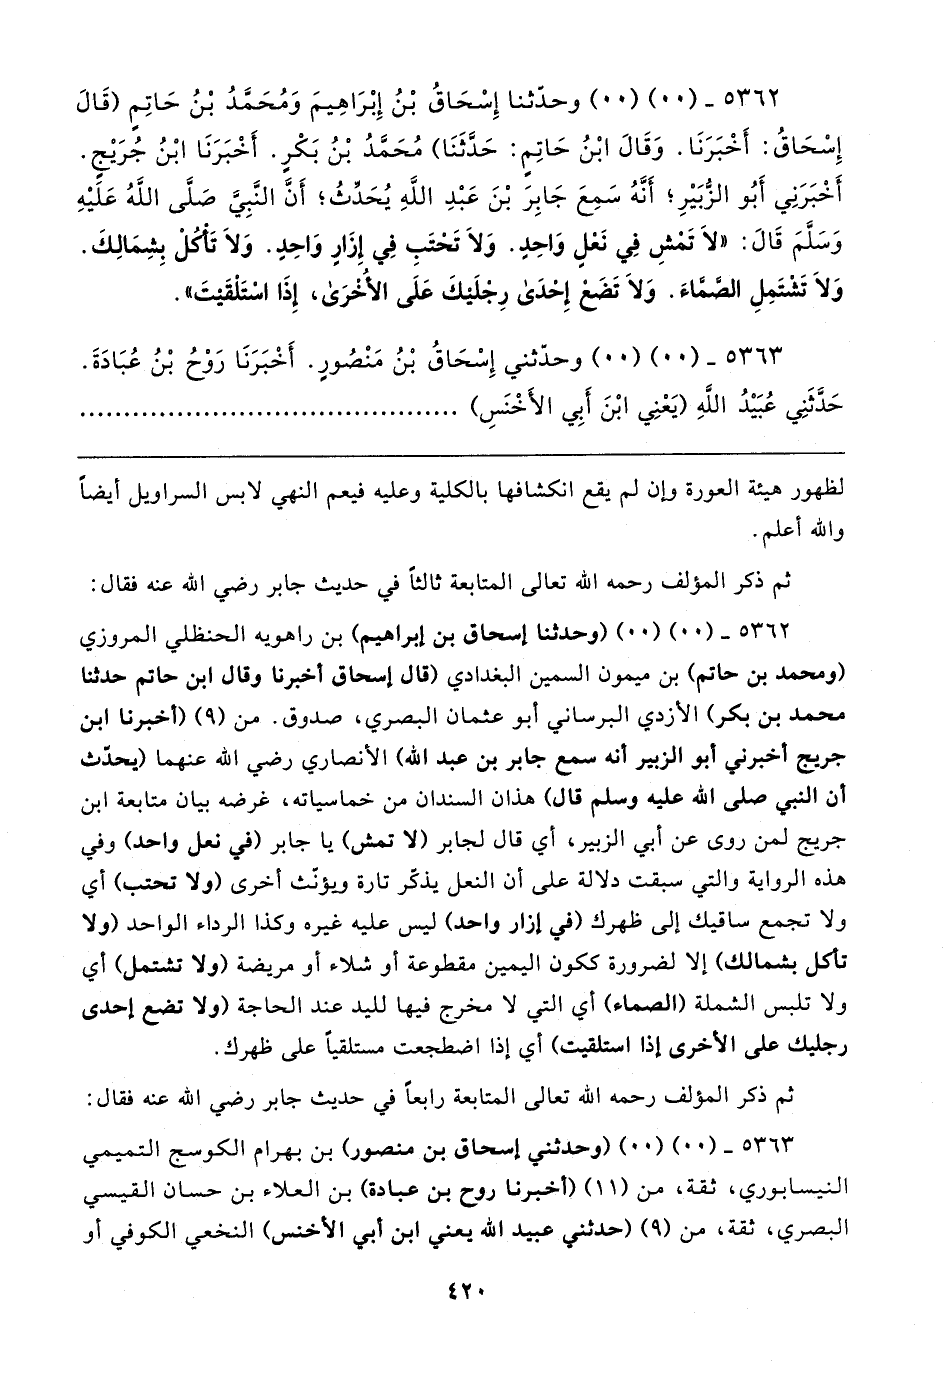 ٥٣٦٢ ـ (٠٠) (٠٠) وحدّثنا إِسْحَاقُ بْنُ إِبْرَاهِيمَ وَمُحَمَّدُ بْنُ حَاتِمٍ (قَالَ
إِسْحَاقُ: أَخْبَرَنَا. وَقَالَ ابْنُ حَاتِمٍ: حَدَّثَنَا) مُحَمَّدُ بْنُ بَكْرٍ. أَخْبَرَنَا ابْنُ جُرَيْجٍ.
أَخْبَرَنِي أَبُو الزُّبَيْرِ؛ أَنَّهُ سَمِعَ جَابِرَ بْنَ عَبْدِ اللَّهِ يُحَدِّثُ؛ أَنَّ النَّبِيَّ صَلَّى اللَّهُ عَلَيْهِ
وَسَلَّمَ قَالَ: «لاَ تَمْشِ فِي نَعْلٍ وَاحِدٍ. وَلاَ تَحْتَبِ فِي إِزَارٍ وَاحِدٍ. وَلاَ تَأْكُلْ بِشِمَالِكَ.
وَلاَ تَشْتَمِلِ الصَّمَّاءَ. وَلاَ تَضَعْ إِحْدَىٰ رِجْلَيْكَ عَلَى الأُخْرَىٰ، إِذَا اسْتَلْقَيْتَ».
٥٣٦٣ ـ (٠٠) (٠٠) وحدّثني إِسْحَاقُ بْنُ مَنْصُورٍ. أَخْبَرَنَا رَوْحُ بْنُ عُبَادَةَ.
حَدَّثَنِي عُبَيْدُ اللَّهِ (يَعْنِي ابْنَ أَبِي الأَخْنَسِ) ..........................................
لظهور هيئة العورة وإن لم يقع انكشافها بالكلية وعليه فيعم النهي لابس السراويل أيضاً
والله أعلم.
ثم ذكر المؤلف رحمه الله تعالى المتابعة ثالثاً في حديث جابر رضي الله عنه فقال:
٥٣٦٢ ـ (٠٠) (٠٠) (وحدثنا إسحاق بن إبراهيم) بن راهويه الحنظلي المروزي
(ومحمد بن حاتم) بن ميمون السمين البغدادي (قال إسحاق أخبرنا وقال ابن حاتم حدثنا
محمد بن بكر) الأزدي البرساني أبو عثمان البصري، صدوق. من (٩) (أخبرنا ابن
جريج أخبرني أبو الزبير أنه سمع جابر بن عبد الله) الأنصاري رضي الله عنهما (يحدّث
أن النبي صلى الله عليه وسلم قال) هذان السندان من خماسياته، غرضه بيان متابعة ابن
جريج لمن روى عن أبي الزبير، أي قال لجابر (لا تمش) يا جابر (في نعل واحد) وفي
هذه الرواية والتي سبقت دلالة على أن النعل يذكّر تارة ويؤنّث أخرى (ولا تحتب) أي
ولا تجمع ساقيك إلى ظهرك (في إزار واحد) ليس عليه غيره وكذا الرداء الواحد (ولا
تأكل بشمالك) إلا لضرورة ككون اليمين مقطوعة أو شلاء أو مريضة (ولا تشتمل) أي
ولا تلبس الشملة (الصماء) أي التي لا مخرج فيها لليد عند الحاجة (ولا تضع إحدى
رجليك على الأخرى إذا استلقيت) أي إذا اضطجعت مستلقياً على ظهرك.
ثم ذكر المؤلف رحمه الله تعالى المتابعة رابعاً في حديث جابر رضي الله عنه فقال:
٥٣٦٣ ـ (٠٠) (٠٠) (وحدثني إسحاق بن منصور) بن بهرام الكوسج التميمي
النيسابوري، ثقة، من (١١) (أخبرنا روح بن عبادة) بن العلاء بن حسان القيسي
البصري، ثقة، من (٩) (حدثني عبيد الله يعني ابن أبي الأخنس) النخعي الكوفي أو
٤٢٠